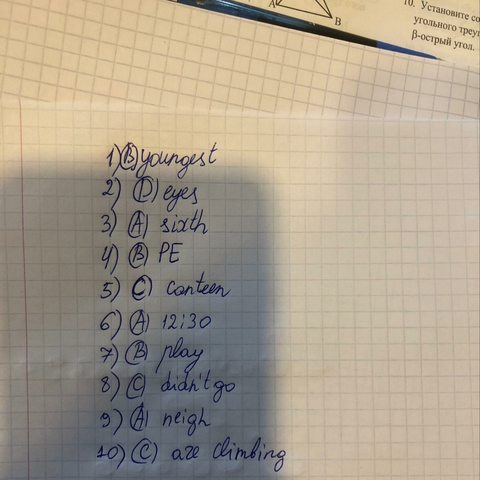 A
B
10. Установите со
угольного треуг
β-острый угол.
1) B) youngest
2) D) eyes
3) A) sixth
4) B) PE
5) C) canteen
6) A) 12:30
7) B) play
8) C) didn't go
9) A) neigh
10) C) are climbing